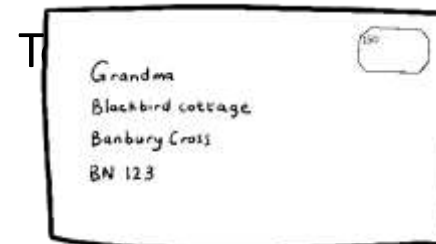 T
150
Grandma
Blackbird cottage
Banbury Cross
BN 123